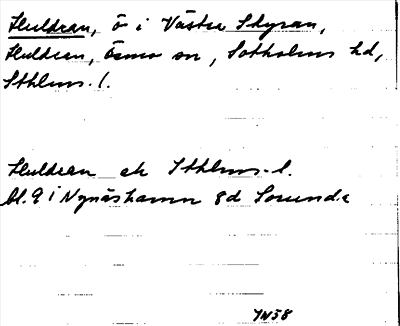 Huldran, ö i Västra Styran,
Huldran, Ösmo sn, Sotholms hd,
Sthlms l.
Huldran ek Sthlms l.
bl. 9 i Nynäshamn 8d Sorunda
YN58